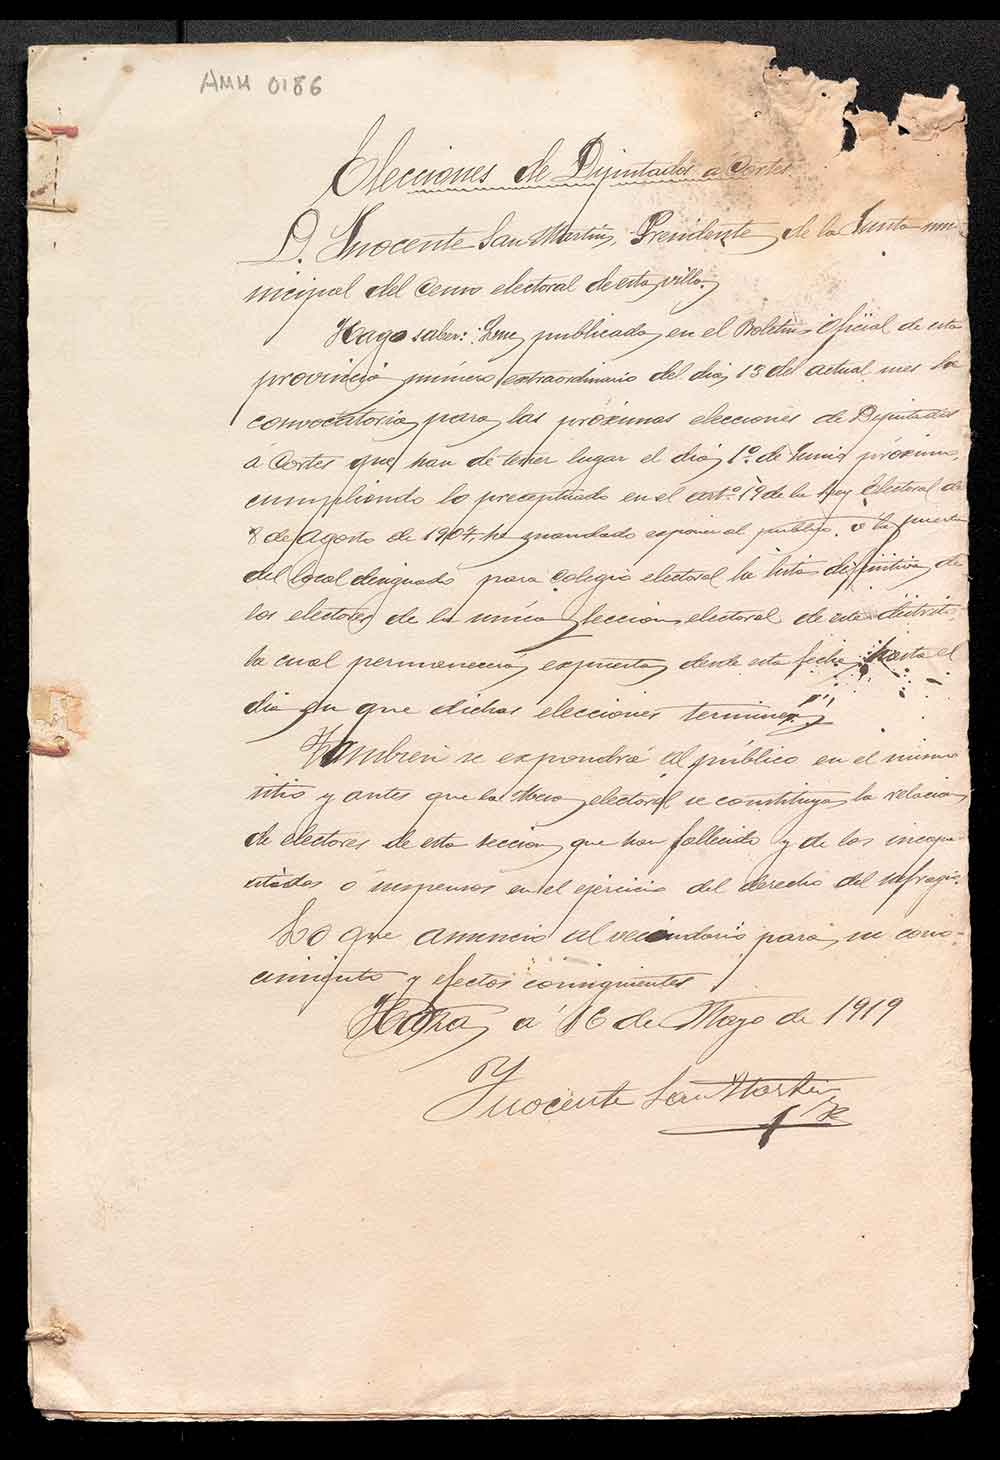 AMH 0186
Elecciones de Diputados a Cortes
D. Ynocente San Martin, Presidente de la Junta mu-
nicipal del Censo electoral de esta villa.
Hago saber: Que publicada en el Boletin Oficial de esta
provincia número extraordinario del dia 13 del actual mes la
convocatoria para las próximas elecciones de Diputados
á Cortes que han de tener lugar el dia 1º de Junio próximo,
cumpliendo lo preceptuado en el artº 19 de la Ley electoral de
8 de Agosto de 1907, he mandado exponer al público, á la puerta
del local designado para Colegio electoral la lista definitiva de
los electores de la única seccion electoral de este distrito
la cual permanecerá expuesta desde esta fecha hasta el
dia en que dichas elecciones terminen
Tambien se expondrá al público en el mismo
sitio y antes que la Mesa electoral se constituya la relacion
de electores de esta seccion que han fallecido y de los incapa-
citados ó suspensos en el ejercicio del derecho del sufragio.
Lo que anuncio al vecindario para su cono-
cimiento y efectos consiguientes
á 16 de Mayo de 1919
Ynocente San Martin